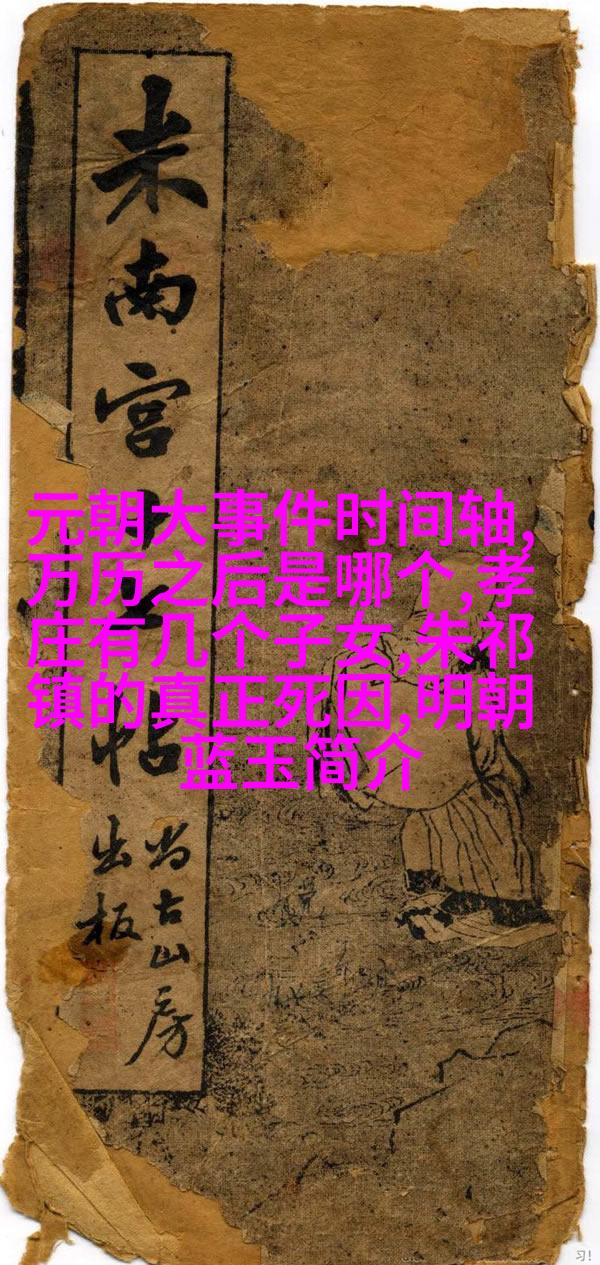 米南宫
帖
尚古山房
出板
元朝大事件时间轴,
万历之后是哪个,孝
庄有几个子女,朱祁
镇的真正死因,明朝
蓝玉简介
习!